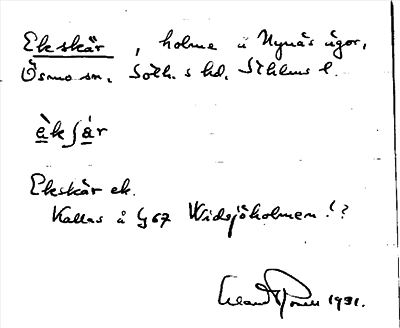 Ekskär, holme u Nynäs ägor,
Ösmo sn, Soth. s hd, Sthlms l.
èkʃár
Ekskär ek.
Kallas å G 67 Widsjöholmen!?
1931.